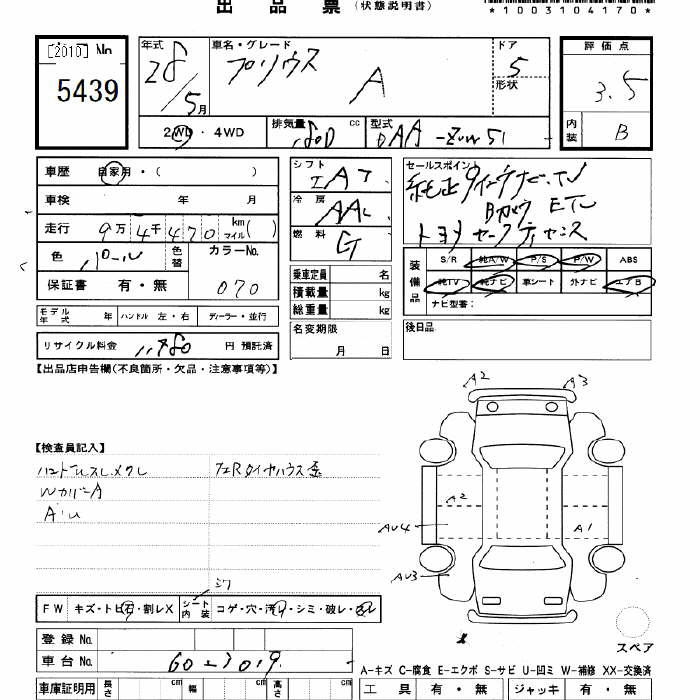 出品票(状態説明書)
*1003104170*
[2010] No
5439
年式 28/5月
車名・グレード プリウス A
ドア 5
形状
評価点 3.5
内装 B
2WD・4WD
排気量 1800 cc
型式 DAA-ZVW51
車歴 自家用・( )
車検 年 月
走行 9万4千470 km マイル( )
色 パール 色替
カラーNo. 070
保証書 有・無
モデル年式 年 ハンドル 左・右 ディーラー・並行
リサイクル料金 11,780 円 預託済
シフト IAT
冷房 AAC
燃料 G
乗車定員 名
積載量 kg
総重量 kg
名変期限 月 日
セールスポイント
純正9インチナビ.TV
Bカメラ ETC
トヨタ セーフティセンス
装備品
S/R 純A/W P/S P/W ABS
純TV 純ナビ 革シート 外ナビ エアB
ナビ型番:
後日品
【出品店申告欄(不良箇所・欠品・注意事項等)】
【検査員記入】
ハンドルスレ.メクレ
WカバーA
A'U
A2 A3
A2
AU4 A1
AU3
シワ
FW キズ・トビ石・割レX シート内装 コゲ・穴・汚レ・シミ・破レ・スレ
登録No.
車台No.
スペア
A-キズ C-腐食 E-エクボ S-サビ U-凹ミ W-補修 XX-交換済
車庫証明用 長さ cm 幅 cm 高さ cm 工具 有・無 ジャッキ 有・無